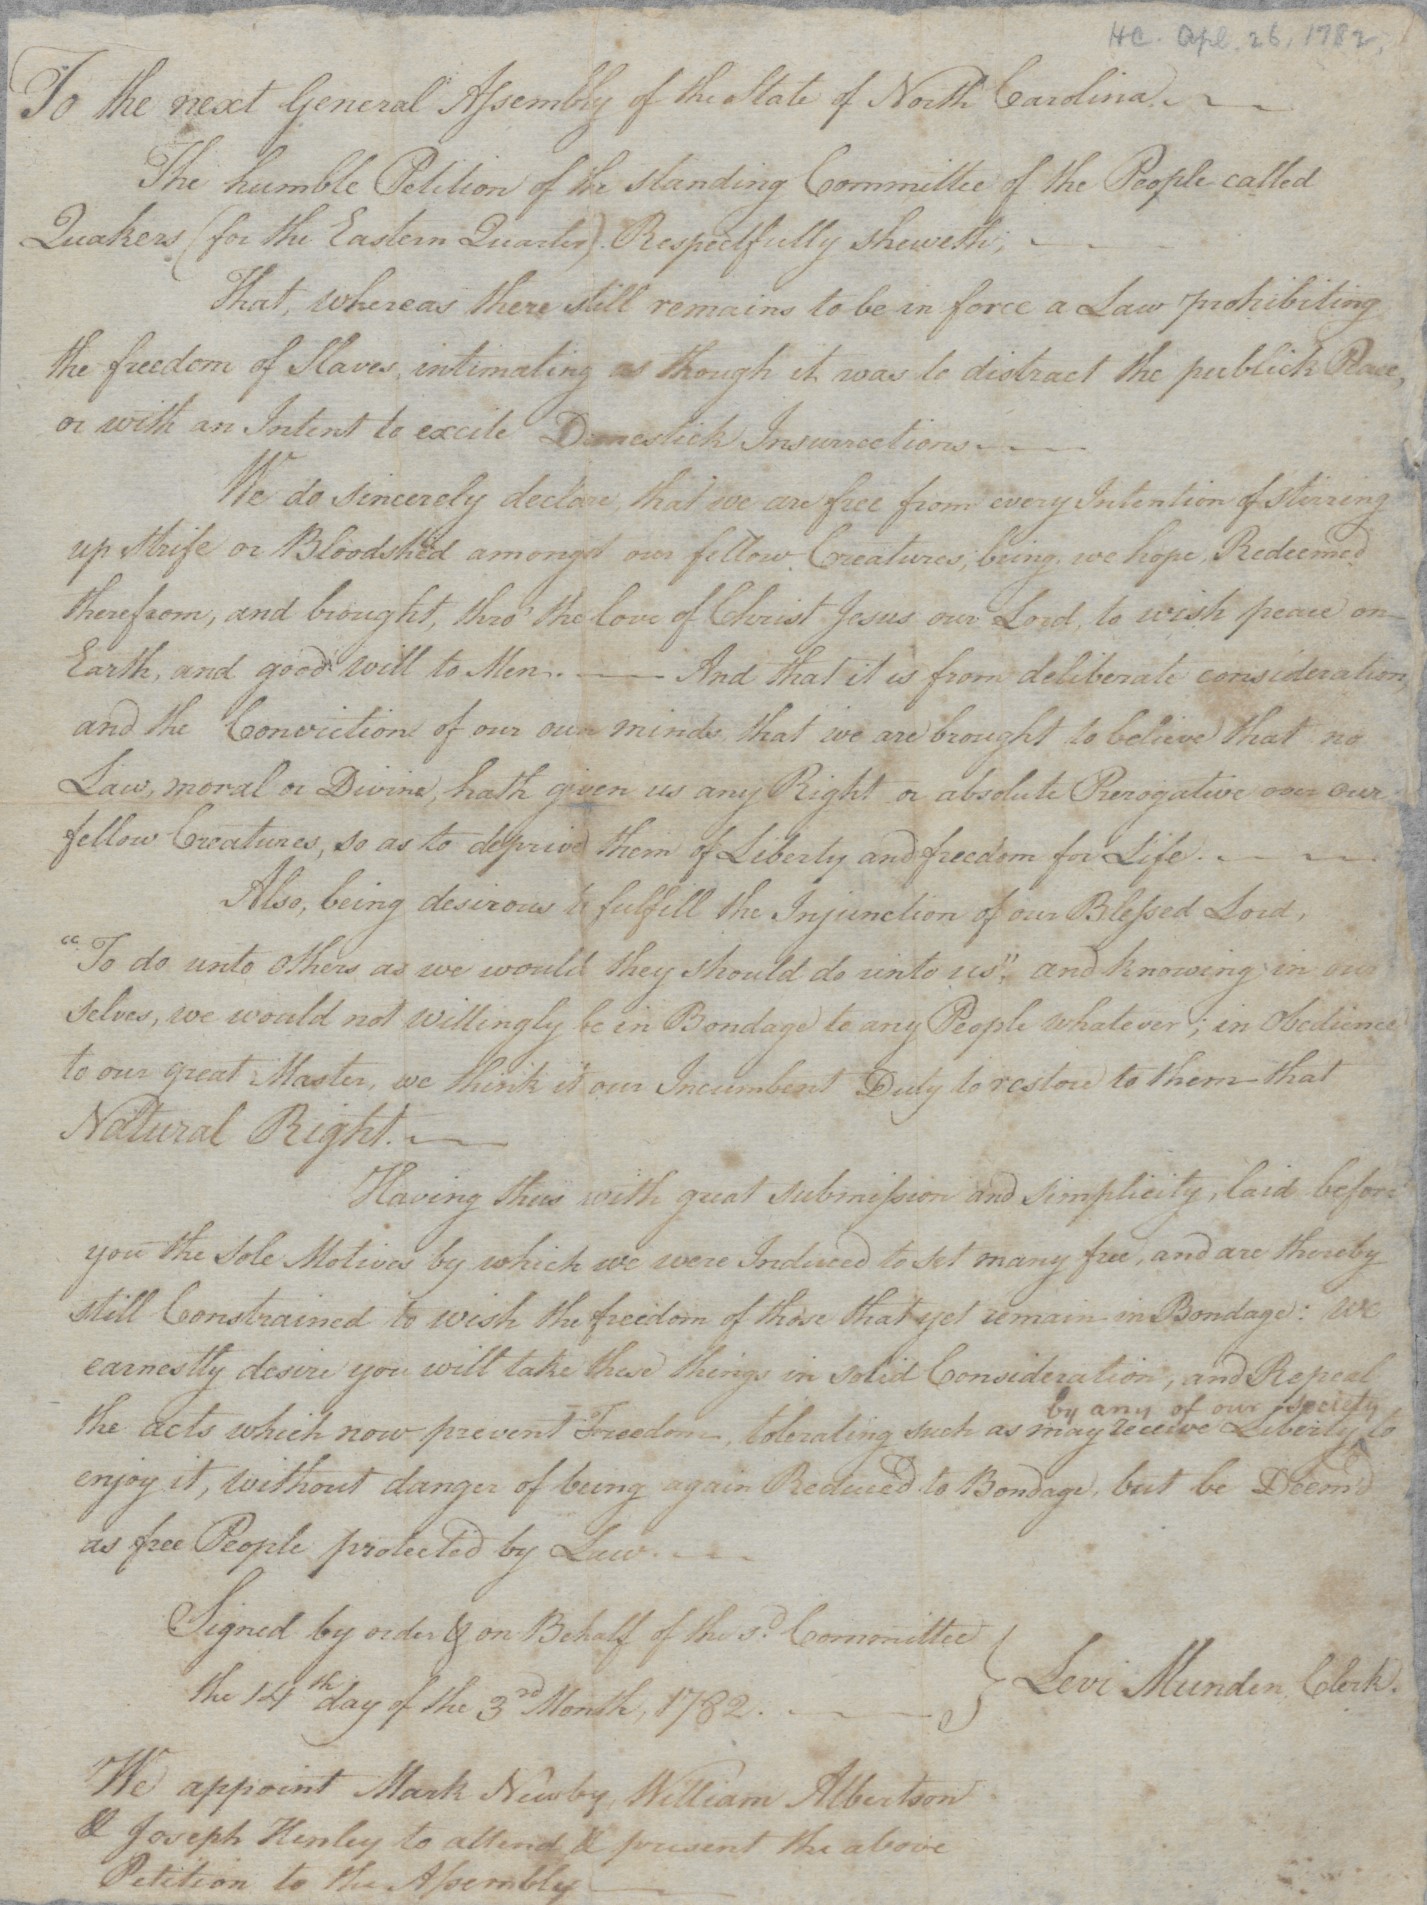 HC. Apl. 26, 1782,
To the next General Assembly of the State of North Carolina.
The humble Petition of the standing Committee of the People called
Quakers (for the Eastern Quarter) Respectfully sheweth;
That, whereas there still remains to be in force a Law prohibiting
the freedom of Slaves, intimating as though it was to distract the publick Peace,
or with an Intent to excite Domestick Insurrections
We do sincerely declare, that we are free from every Intention of stirring
up strife or Bloodshed amongst our fellow Creatures; being, we hope, Redeemed
therefrom, and brought, thro' the love of Christ Jesus our Lord, to wish peace on
Earth, and good will to Men. And that it is from deliberate consideration,
and the Conviction of our own minds, that we are brought to believe that no
Law, moral or Divine, hath given us any Right or absolute Prerogative over our
fellow Creatures, so as to deprive them of Liberty and freedom for Life.
Also, being desirous to fulfill the Injunction of our Blessed Lord,
"To do unto others as we would they should do unto us"; and knowing in our
selves, we would not willingly be in Bondage to any People whatever; in Obedience
to our great Master, we think it our Incumbent Duty to restore to them that
Natural Right.
Having thus with great submission and simplicity, laid before
you the sole Motives by which we were Induced to set many free, and are thereby
still Constrained to wish the freedom of those that yet remain in Bondage: we
earnestly desire you will take these things in solid Consideration, and Repeal
by any of our society
the acts which now prevent Freedom, tolerating such as may receive Liberty, to
enjoy it, without danger of being again Reduced to Bondage, but be Deem'd
as free People protected by Law.
Signed by order & on Behalf of the sd. Committee
the 14th day of the 3rd Month, 1782. } Levi Munden Clerk.
We appoint Mark Newby, William Albertson
& Joseph Henley to attend & present the above
Petition to the Assembly